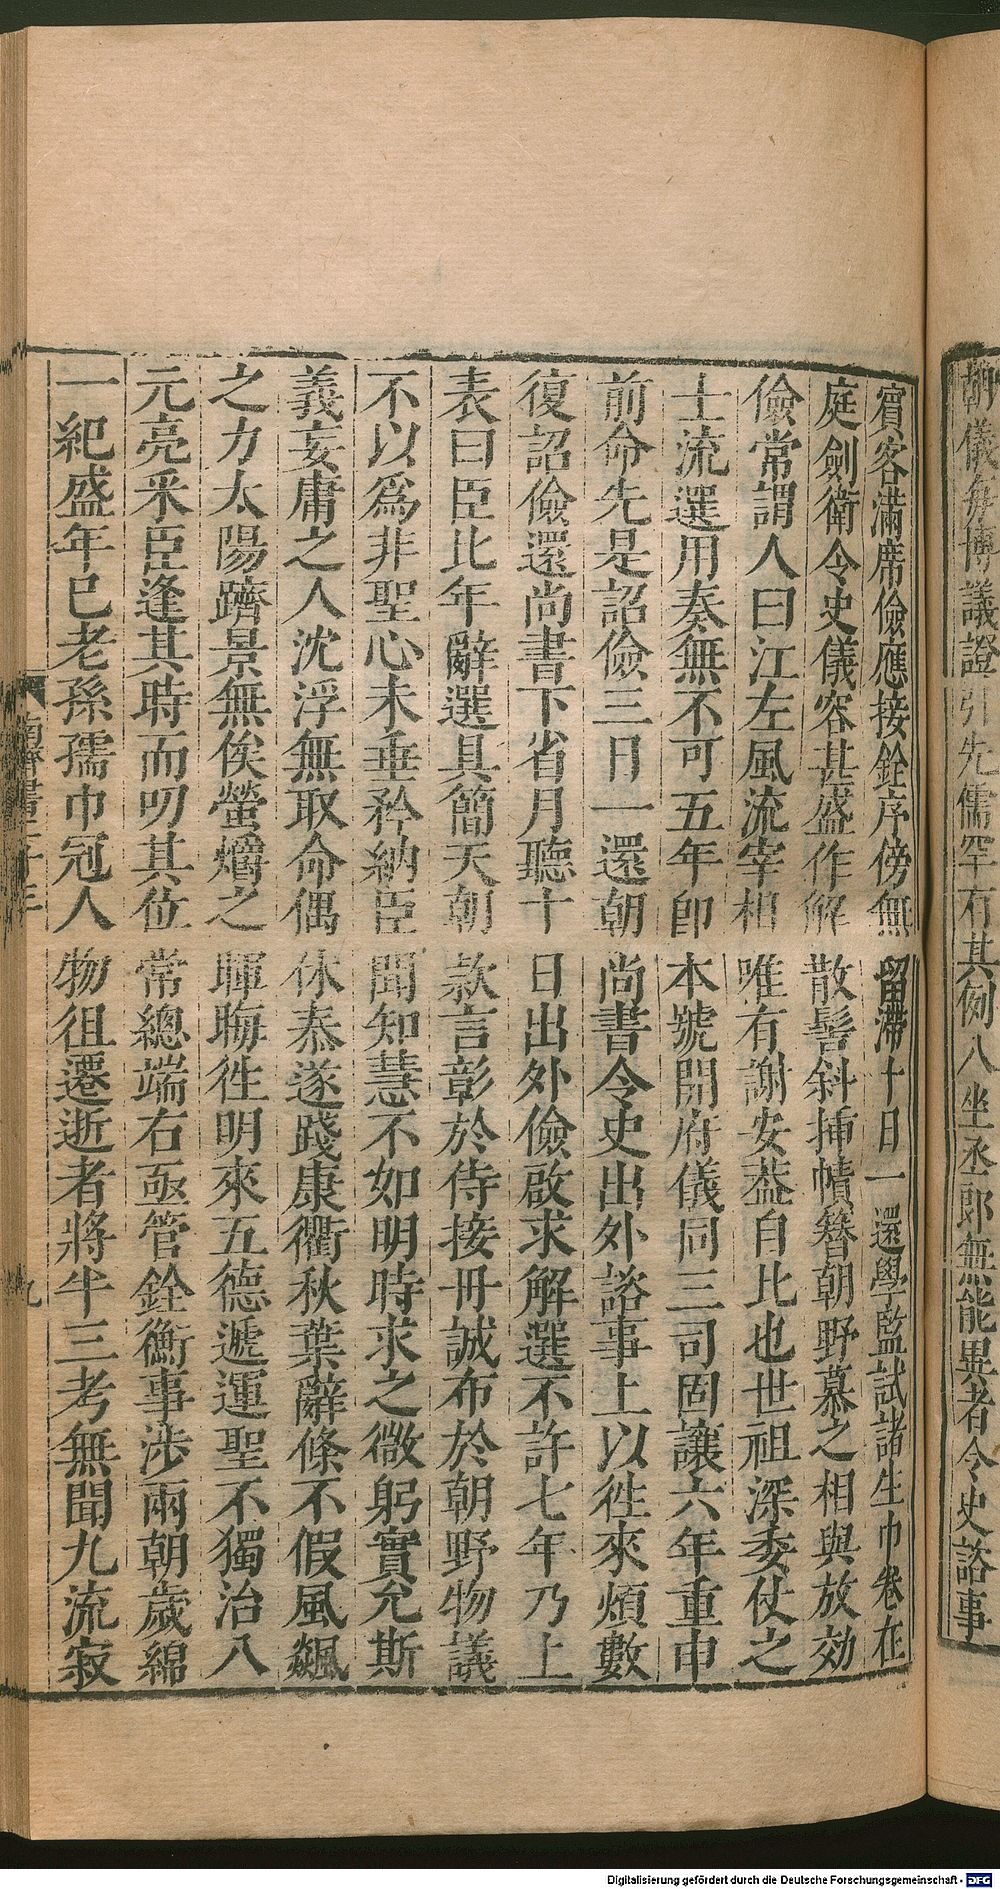 朝儀每博議證引先儒罕有其例八坐丞郎無能異者令史諮事
賓客滿席儉應接銓序傍無留滯十日一還學監試諸生巾卷在
庭劍衛令史儀容甚盛作解散髻斜插幘簪朝野慕之相與放効
儉常謂人曰江左風流宰相唯有謝安葢自比也世祖深委仗之
士流選用奏無不可五年即本號開府儀同三司固讓六年重申
前命先是詔儉三日一還朝尚書令史出外諮事上以徃來煩數
復詔儉還尚書下省月聽十日出外儉啟求解選不許七年乃上
表曰臣比年辭選具簡天朝款言彰於侍接丹誠布於朝野物議
不以爲非聖心未垂矜納臣聞知慧不如明時求之微躬實允斯
義妄庸之人沈浮無取命偶休泰遂踐康衢秋葉辭條不假風飈
之力太陽躋景無俟螢爝之暉晦徃明來五德遞運聖不獨治八
元亮釆臣逢其時而叨其位常總端右亟管銓衡事涉兩朝歲綿
一紀盛年已老孫孺巾冠人物徂遷逝者將半三考無聞九流寂
九
Digitalisierung gefördert durch die Deutsche Forschungsgemeinschaft - DFG